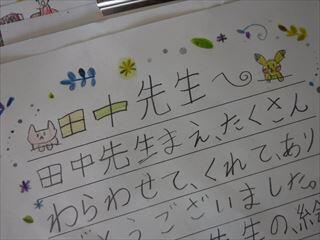 田中先生へ
田中先生まえ、たくさん
わらわせて、くれて、あり
がとうございました。
先生の、絵